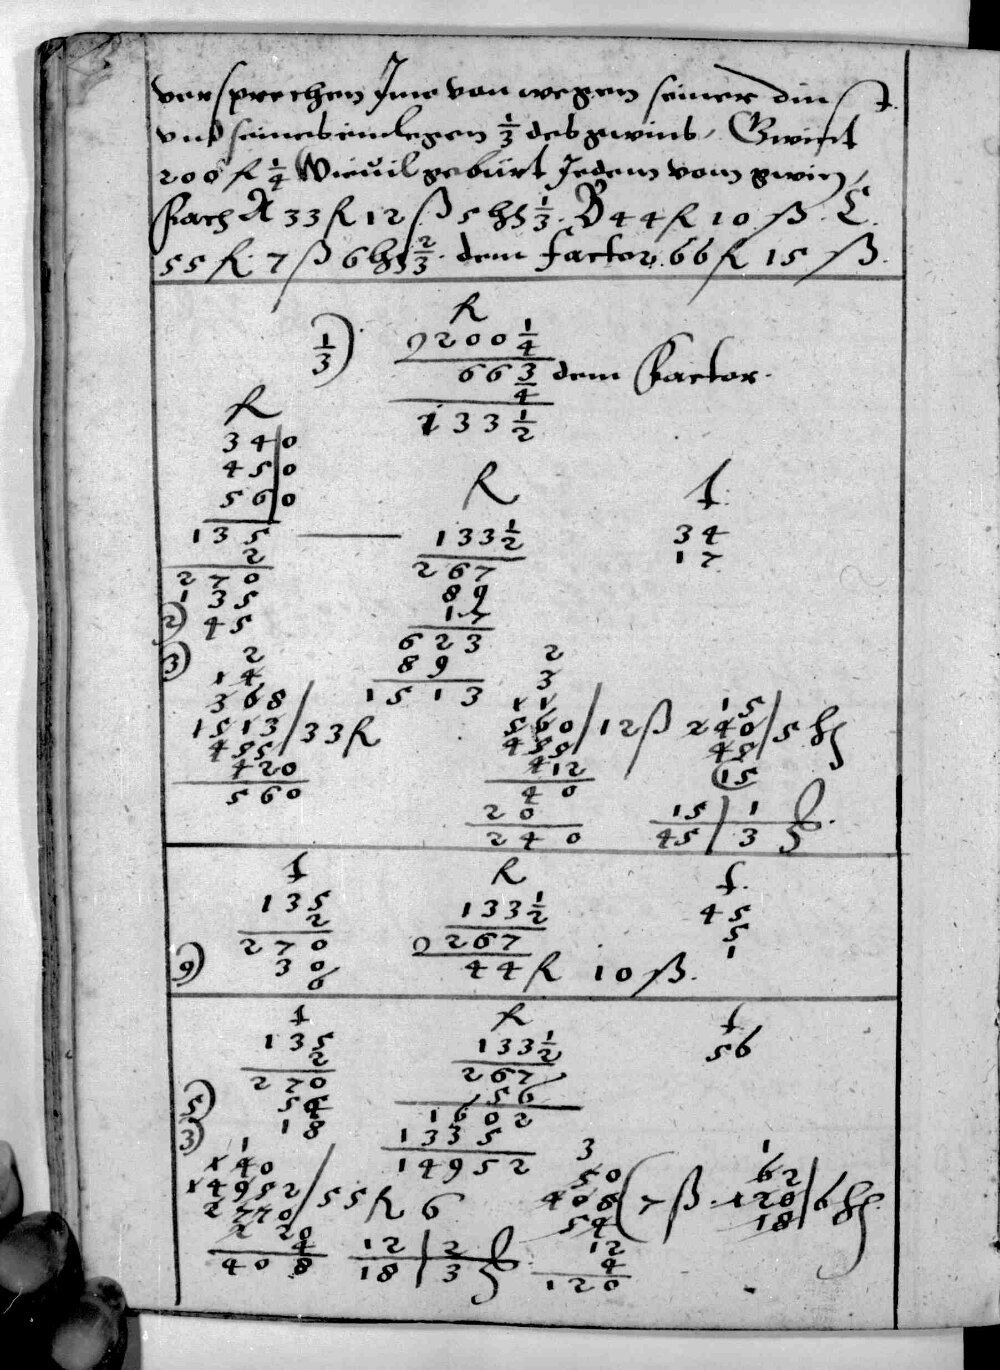 versprechen Jme von wegen seiner dinst
vnd seines einlegen 1/3 des gwins, Gwint
200 fl 1/4 Wieuil gebürt Jedem vom gwin,
Fach A 33 fl 12 ß 5 hl 1/3. B 44 fl 10 ß. C.
55 fl. 7 ß 6 hl 2/3. dem factor. 66 fl 15 ß.
fl
1/3) 200 1/4
66 3/4 dem Factor.
133 1/2
fl
34|0
45|0
56|0 fl f.
135 — 133 1/2 34
2 267 17
270 89
135 17
2) 45 623
3) 89
1513
2 2
14 3
368 11 15
1513 / 33 fl 560 / 12 ß 240 / 5 hl
455 455 45
420 412 15
560 40
20 15 | 1
240 45 | 3 hl.
f fl f.
135 133 1/2 45
2 5
270 267 1
9) 30 44 fl 10 ß.
6
f fl f
135 133 1/2 56
2 267
270 56
5) 54 1602
3) 18 1335
14952
1 3 1
140 50 62
14952 / 55 fl 6 408 ( 7 ß. 120 / 6 hl.
2770 54 18
2 20 12
4 12 | 2 4
408 18 | 3 hl 120